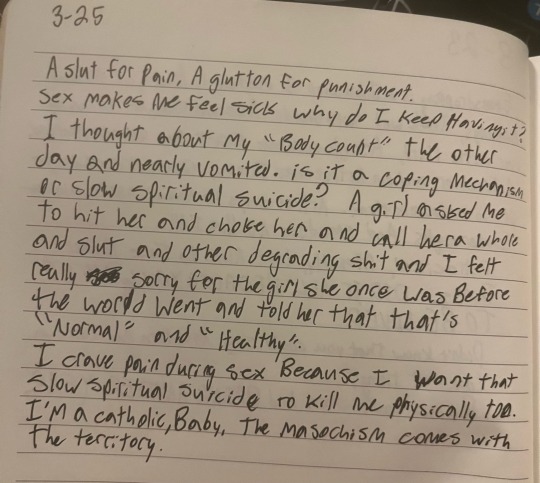 3-25
A slut for pain, A glutton for punishment.
Sex makes me feel sick why do I keep Having it?
I thought about my "Body count" the other
day and nearly vomited. is it a coping mechanism
or slow spiritual suicide? A girl asked me
to hit her and choke her and call her a whole
and slut and other degrading shit and I felt
really sorry for the girl she once was Before
the world went and told her that that's
"Normal" and "Healthy".
I crave pain during sex Because I want that
slow spiritual suicide to kill me physically too.
I'm a catholic, Baby, The masochism comes with
the territory.